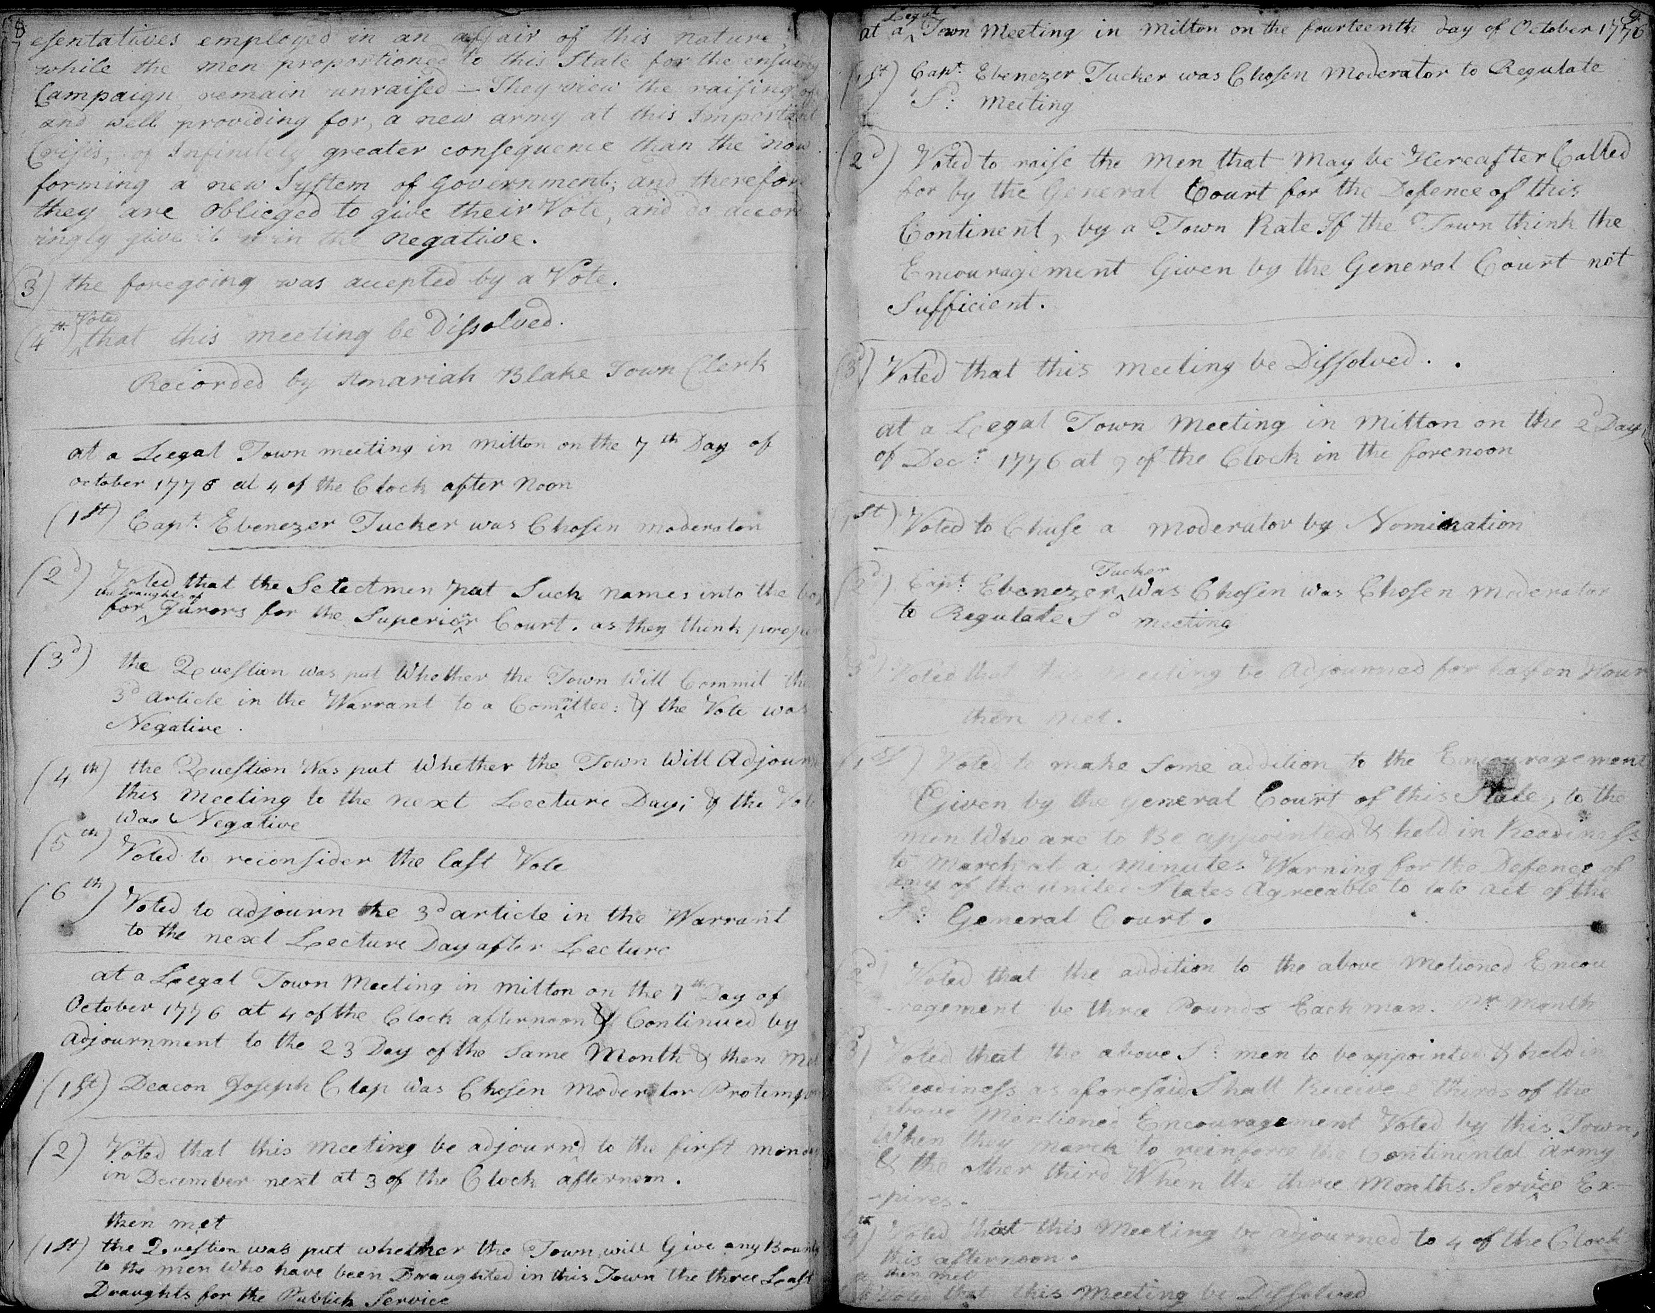 8
esentatives employed in an affair of this nature,
while the men proportioned to this State for the ensuing
Campaign remain unraised — They view the raising of
and well providing for, a new army at this Important
Crisis, of Infinitely greater consequence than the now
forming a new System of Government; and therefore
they are Oblieged to give their Vote, and do accor
ingly give it in the negative.
(3) the foregoing was accepted by a Vote.
Voted
(4th) ‸that this meeting be Dissolved.
Recorded by Amariah Blake Town Clerk
at a Leegal Town meeting in milton on the 7th Day of
October 1776 at 4 of the Clock after Noon
(1st) Capt. Ebenezer Tucker was Chosen moderator
(2d) Voted that the Selectmen put Such names into the box
the Draughts of
for ‸ Jurors for the Superior Court. as they think proper
(3d) the Question was put Whether the Town Will Commit the
3d article in the Warrant to a Comittee: & the Vote was
Negative.
(4th) the Question Was put Whether the Town Will Adjourn
this Meeting to the next Lecture Day; & the Vote
Was Negative
(5th) Voted to reconsider the last Vote
(6th) Voted to adjourn the 3d article in the Warrant
to the next Lecture Day after Lecture
at a Leegal Town Meeting in milton on the 7th Day of
October 1776 at 4 of the Clock afternoon & Continued by
Adjournment to the 23 Day of the Same Month & then Met
(1st) Deacon Joseph Clap was Chosen Moderator Protempor
(2) Voted that this Meeting be adjournd to the first monday
in December next at 3 of the Clock afternoon.
then met
(1st) the Question was put whether the Town will Give any Bounty
to the men Who have been Draughted in this Town the three Last
Draughts for the Publick Service
Legal
at a ‸ Town Meeting in Milton on the fourteenth day of October 1776
(1st) Capt. Ebenezer Tucker was Chosen Moderator to Regulate
Sd: meeting
(2d) Voted to raise the Men that May be Hereafter Called
for by the General Court for the Defence of this
Continent, by a Town Rate If the Town think the
Encouragement Given by the General Court not
Sufficient.
(3) Voted that this meeting be Dissolved.
at a Leegal Town Meeting in Milton on the 2d Day
of Decr. 1776 at 9 of the Clock in the forenoon
(1st) Voted to Chuse a moderator by Nomination
Tucker
(2d) Capt. Ebenezer ‸ Was Chosen was Chosen moderator
to Regulate Sd meeting
3d Voted that this Meeting be Adjourned for half an Hour
then met.
(1st) Voted to make Some addition to the Encouragement
Given by the General Court of this State, to the
men Who are to Be appointed & held in Readiness
to March at a Minutes Warning for the Defence of
any of the united States Agreeable to late act of the
Sd: General Court.
2d Voted that the addition to the above Metioned Encou
ragement be three Pounds Each man. pr month
3) Voted that the above Sd: men to be appointed & held in
Readiness as aforesaid Shall Receive 2 thirds of the
above Mentioned Encouragement Voted by this Town,
When they march to reinforce the Continental Army
& the other third When the three Months Service Ex-
-pires-
4th) Voted that this Meeting be adjourned to 4 of the Clock
this afternoon.
then met
Voted that this Meeting be Dissolved